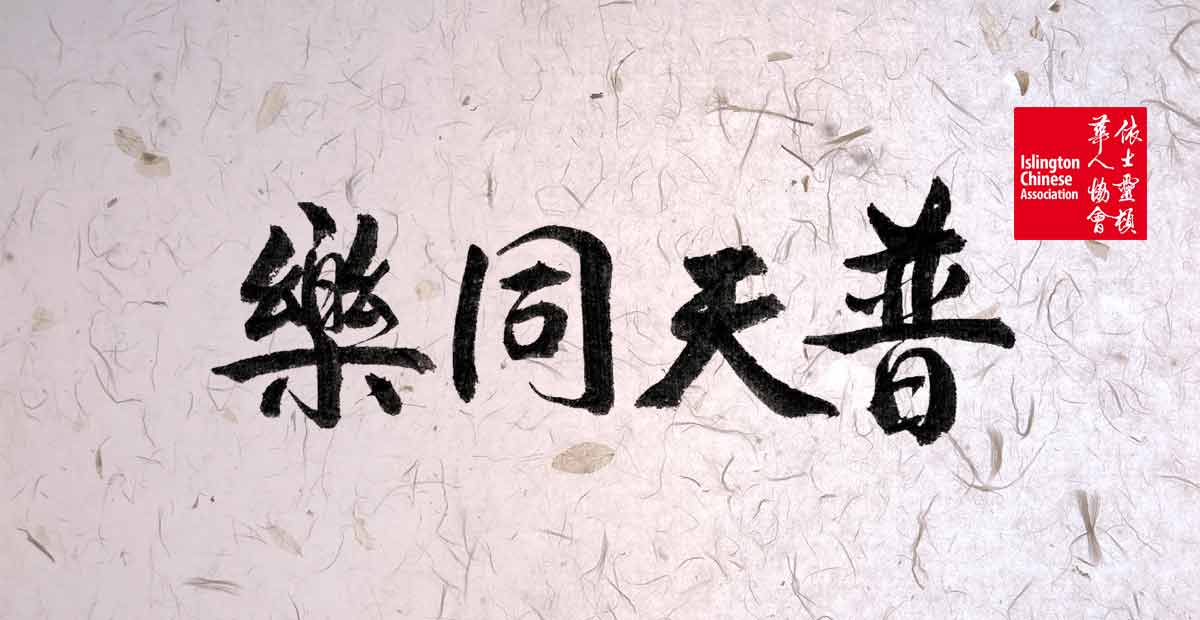 普天同樂
依士靈頓
華人協會
Islington
Chinese
Association